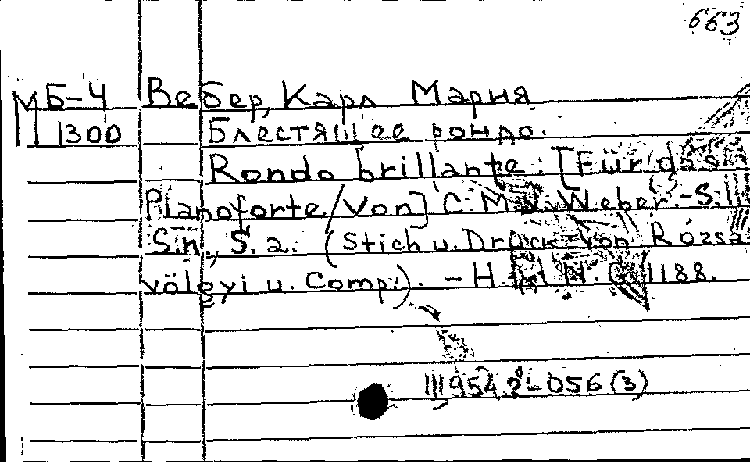 663
МБ-4 Вебер, Карл Мария
1300 Блестящее рондо.
Rondo brillante. [Für das
Pianoforte/von] C. M. v. Weber. - S. l.
S. n., S. a. (Stich u. Druck von Rózsa
völgyi u. Comp.). - H. N. 1188.
III 954. - 056 (3)